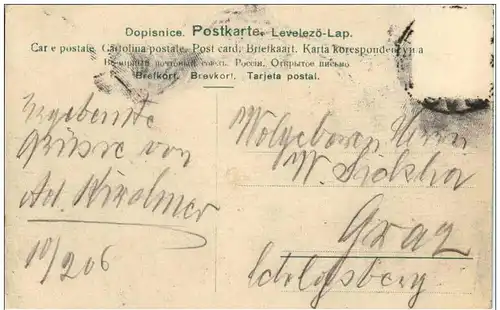 Dopisnice. Postkarte. Levelező-Lap.
Carte postale. Cartolina postale. Post card. Briefkaart. Karta korespondencyjna
Всемірный почтовый союзъ. Россія. Открытое письмо
Brefkort. Brevkort. Tarjeta postal.
Ergebenste
Grüsse von
Ad.
10/2 06
Wolgeboren Herrn
W.
Graz